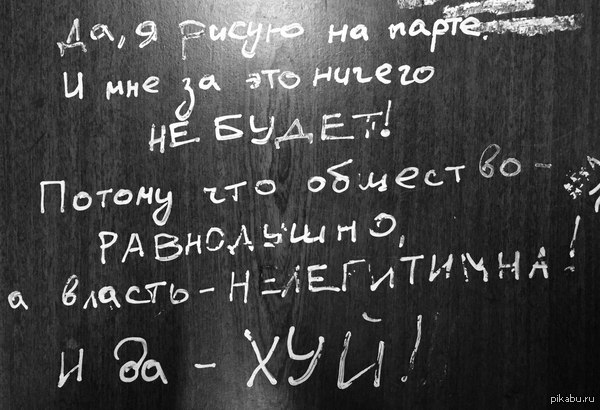 Да, я рисую на парте.
И мне за это ничего
НЕ БУДЕТ!
Потому что общество -
РАВНОДУШНО,
а власть - НЕЛЕГИТИМНА!
И да - ХУЙ!
pikabu.ru